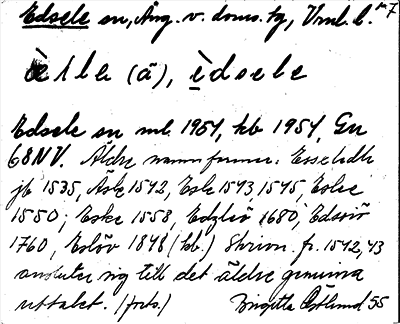 Edsele sn, Ång. v. doms. fg, Vml. l. 7
èlle (ä), èdsele
Edsele sn ml 1951, kb 1954, Gn
68NV. Äldre namnformer: Esseledh
jb 1535, Äsle 1542, Esle 1543, 1545, Eslee
1550; Esle 1558, Edzleö 1680, Edsöö
1760, Eslöv 1848 (kb.) Skrivn. fr. 1542, 43
ansluter sig till det äldre genuina
uttalet. (forts.) Birgitta Östlund 55